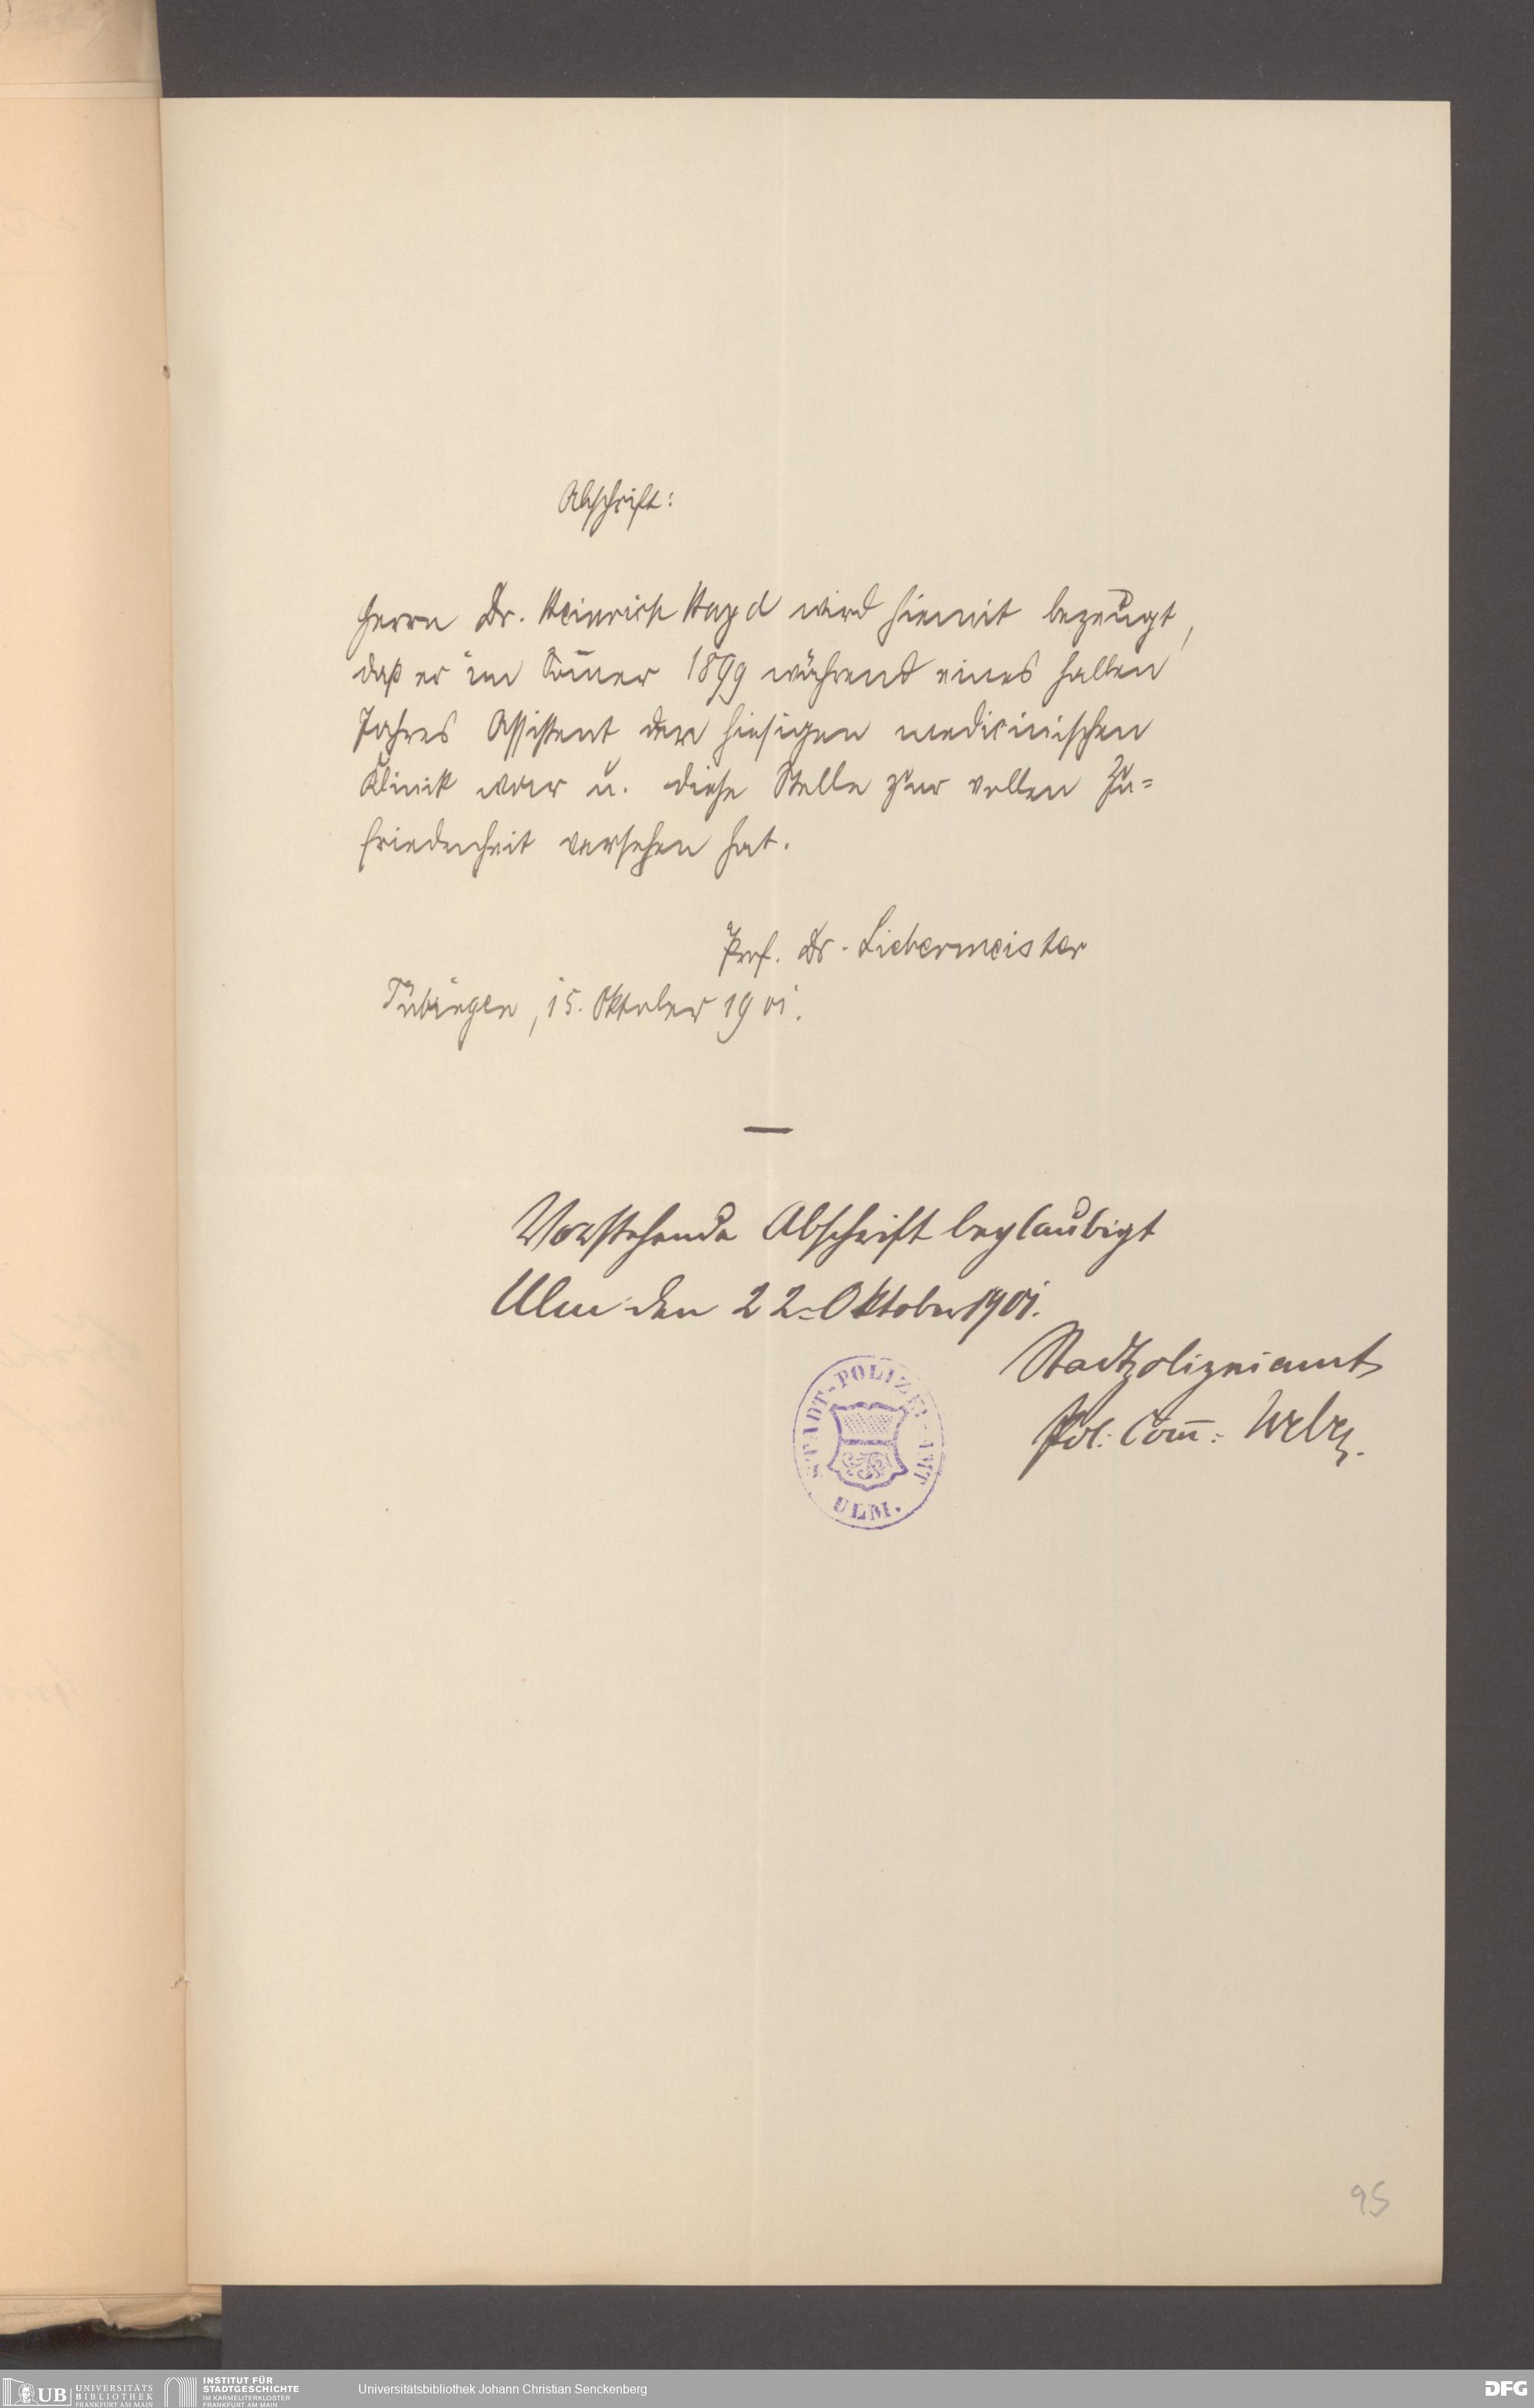 Abschrift:
Herrn Dr. Heinrich Hayd wird hiemit bezeugt,
daß er im Som̄er 1899 während eines halben
Jahres Assistent der hiesigen medicinischen
Klinik war u. diese Stelle zur vollen Zu=
friedenheit versehen hat.
Prof. Dr. Liebermeister
Tübingen, 15. Oktober 1901.
—
Vorstehende Abschrift beglaubigt
Ulm den 22. Oktober 1901.
Stadtpolizeiamt
Pol: Com̄:
STADT-POLIZEI-AMT
ULM.
95
UB UNIVERSITÄTS
BIBLIOTHEK
FRANKFURT AM MAIN
INSTITUT FÜR
STADTGESCHICHTE
IM KARMELITERKLOSTER
FRANKFURT AM MAIN
Universitätsbibliothek Johann Christian Senckenberg
DFG